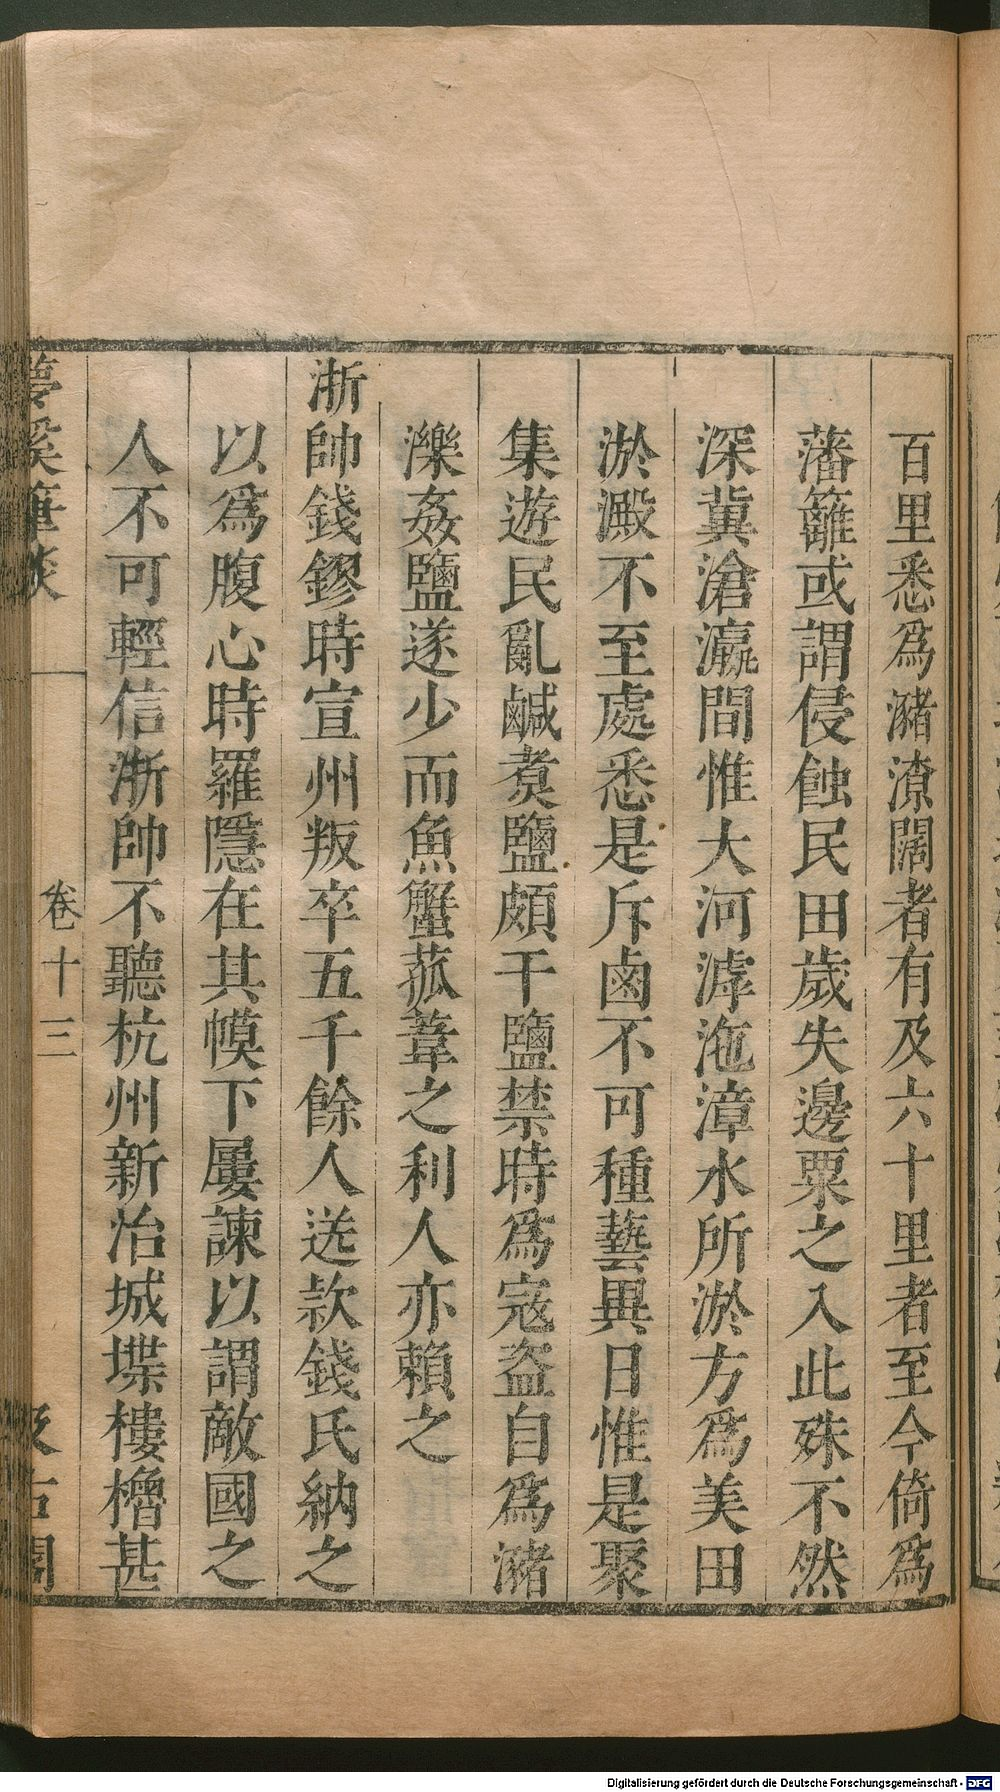 百里悉爲瀦潦闊者有及六十里者至今倚爲
藩籬或謂侵蝕民田歲失邊粟之入此殊不然
深冀滄瀛間惟大河滹沲漳水所淤方爲美田
淤澱不至處悉是斥鹵不可種藝異日惟是聚
集遊民亂鹹煑鹽頗干鹽禁時爲寇盗自爲瀦
濼姦鹽遂少而魚蟹菰葦之利人亦賴之
浙帥錢鏐時宣州叛卒五千餘人送款錢氏納之
以爲腹心時羅隱在其幙下屢諫以謂敵國之
人不可輕信浙帥不聽杭州新治城堞樓櫓甚
夢溪筆談
卷十三
汲古閣
Digitalisierung gefördert durch die Deutsche Forschungsgemeinschaft - DFG